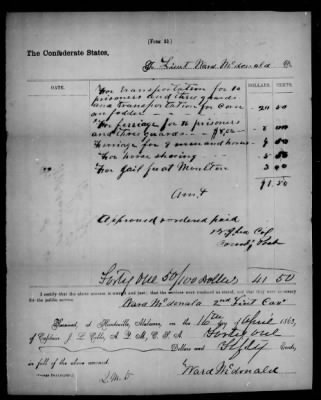 (Form 35.)
The Confederate States,
To Lieut Ward McDonald Dr
DATE. DOLLARS. CENTS.
For transportation for 10
prisoners and three guards
and transportation for corn
an fodder 20 50
For ferriage for 10 prisoners
and three guards
ferriage for 4 men and horses
For horse shoeing
For Jail fee at Moulton
Am't 41.50
Approved & ordered paid
Forty one 50/100 Dollars 41 50
I certify that the above account is correct and just; that the services were rendered as stated, and that they were necessary
for the public service.
Ward McDonald 2nd Lieut Cav
Received, at Huntsville, Alabama, on the 16th day of April 1863,
of Captain J. L. Cobb, A. Q. M., C. S. A. Forty one
Dollars and Fifty Cents,
in full of the above account.
Ward McDonald